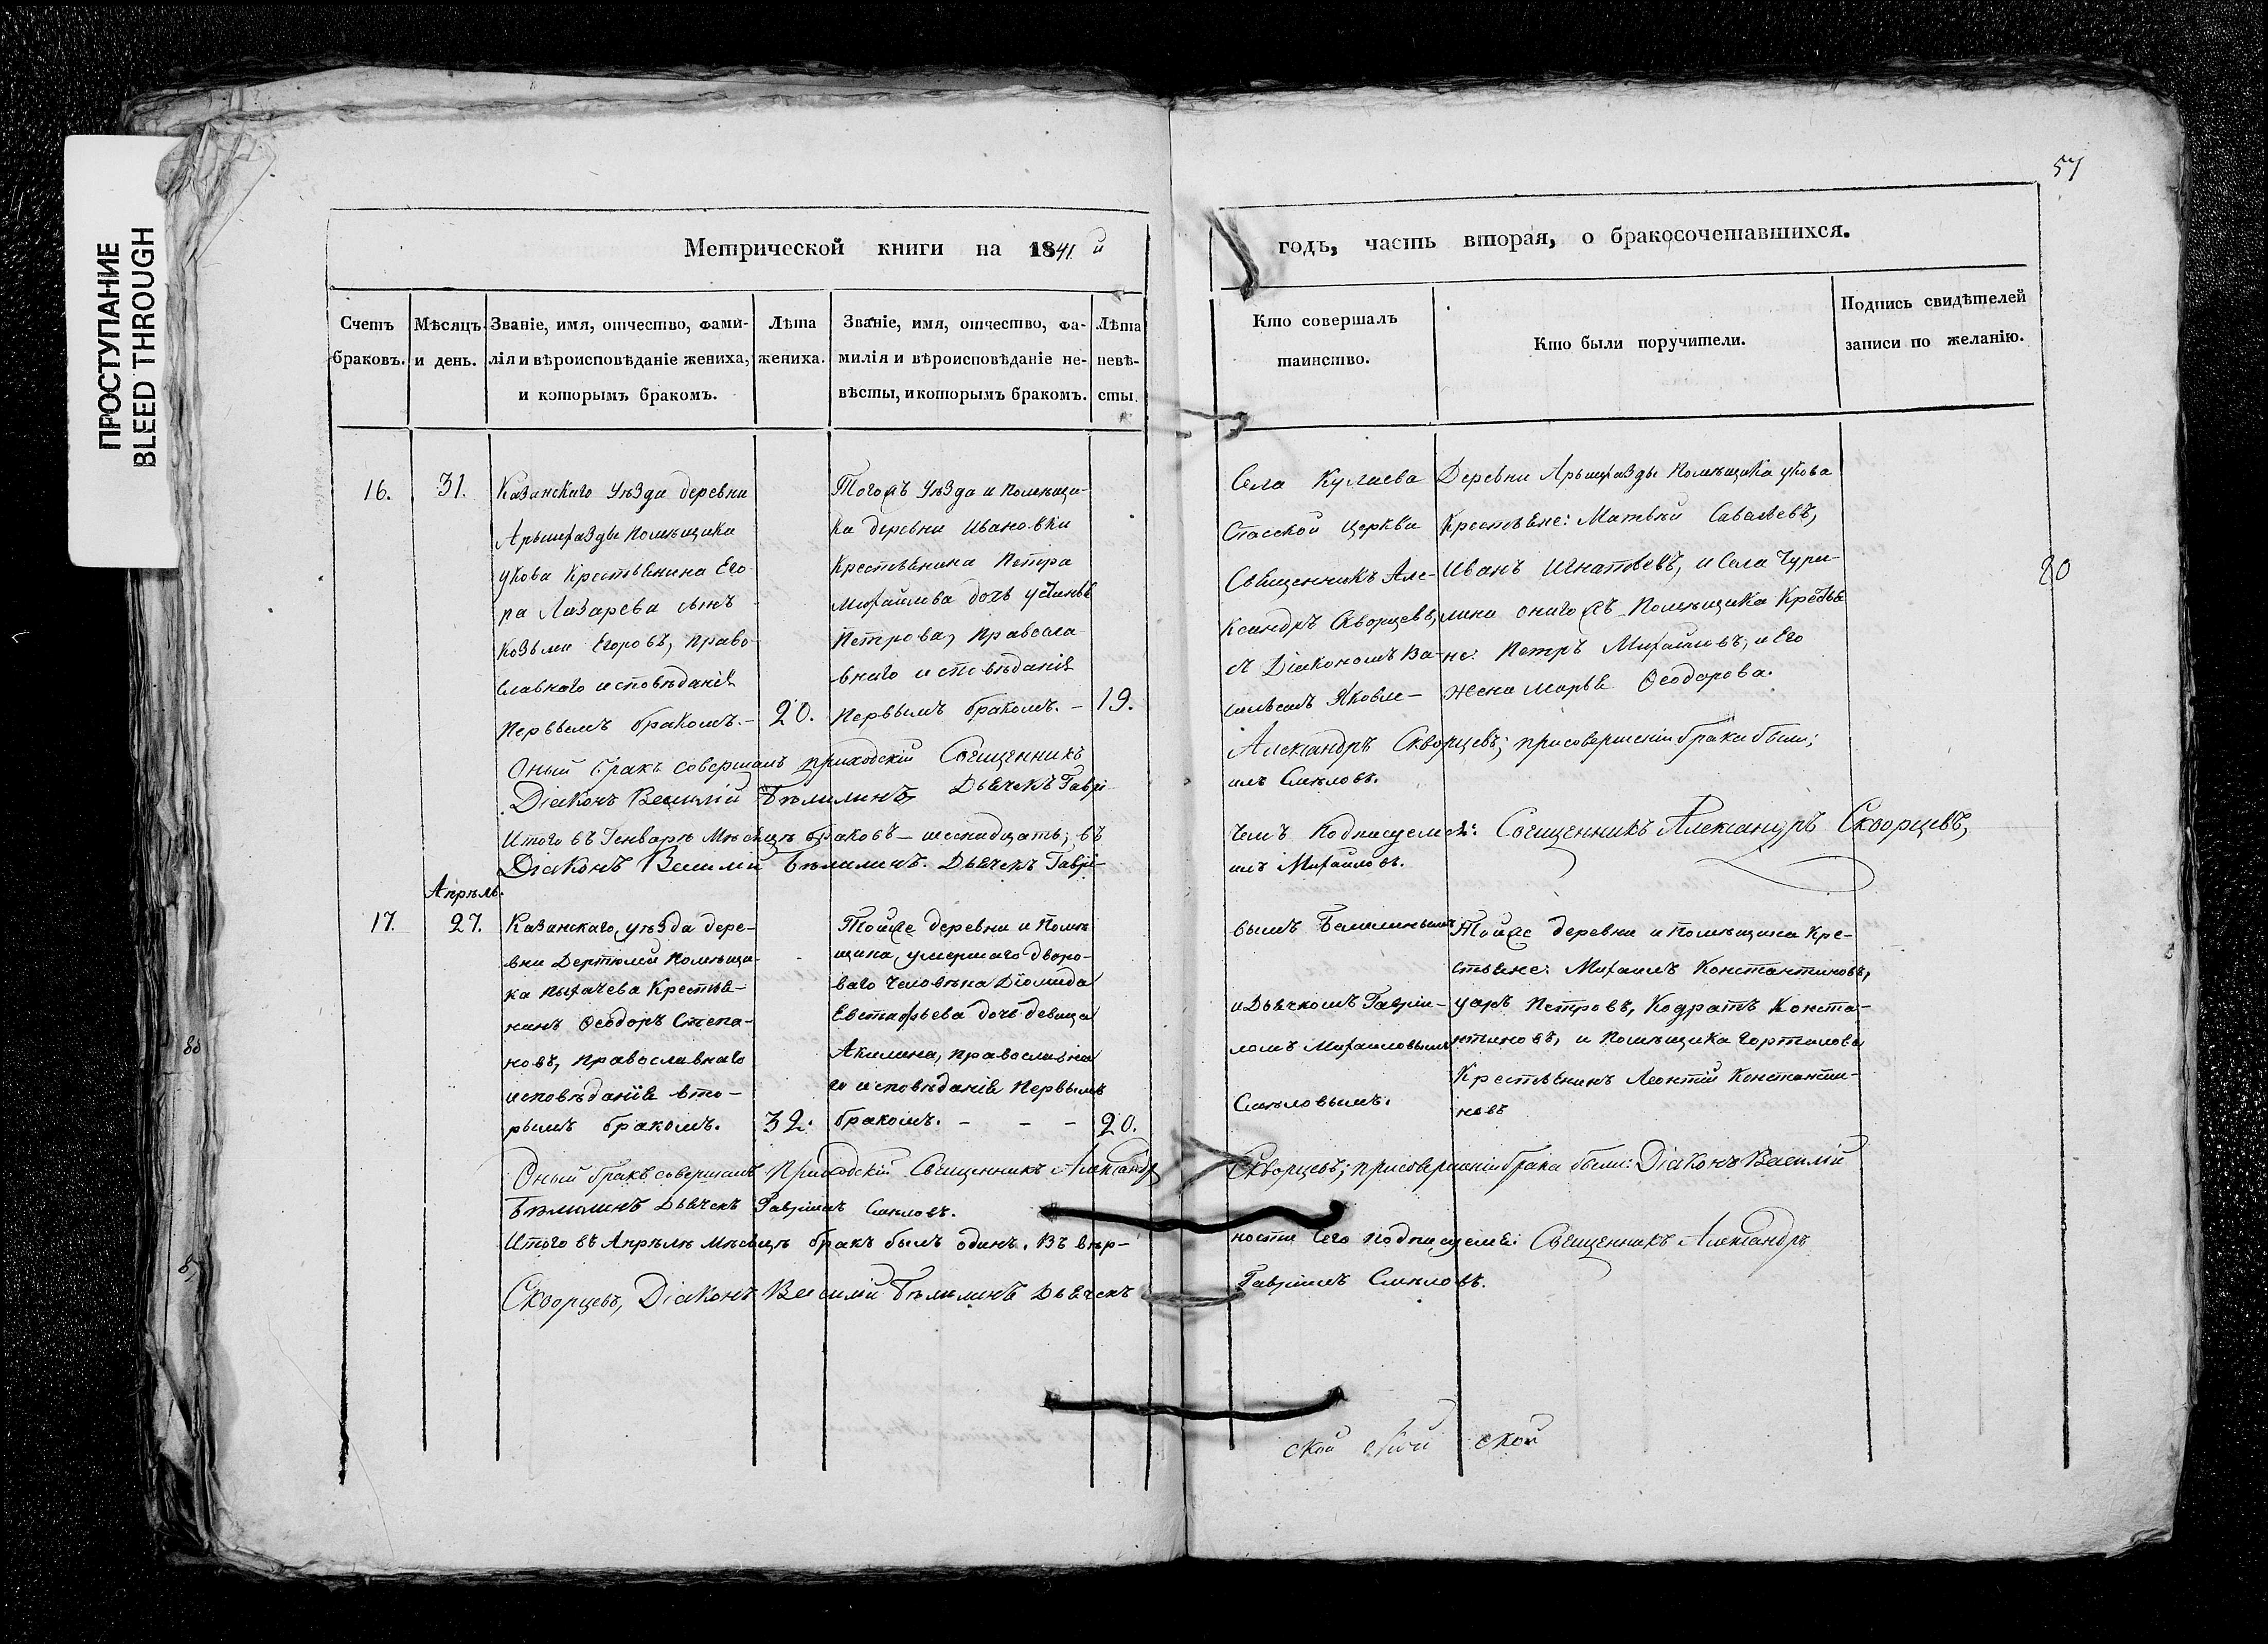 ПРОСТУПАНИЕ
BLEED THROUGH
57
Метрической книги на 1841 й
годъ, часть вторая, о бракосочетавшихся.
Счетъ
браковъ.
Мѣсяцъ
и день.
Званіе, имя, отчество, фами-
лія и вѣроисповѣданіе жениха,
и которымъ бракомъ.
Лѣта
жениха.
Званіе, имя, отчество, фа-
милія и вѣроисповѣданіе не-
вѣсты, и которымъ бракомъ.
Лѣта
невѣ-
сты.
Кто совершалъ
таинство.
Кто были поручители.
Подпись свидѣтелей
записи по желанію.
16.
31.
Казанскаго Уѣзда деревни
Арышхазды Помѣщика
Укова Крестьянина Его-
ра Лазарева сынъ
Козьма Егоровъ, право-
славнаго исповѣданія
первымъ бракомъ.-
20.
Тогожъ Уѣзда и Помѣщи-
ка деревни Ивановки
Крестьянина Петра
Михайлова дочь Устинья
Петрова, правосла-
внаго исповѣданія
первымъ бракомъ. -
19.
Села Кулаева
Спасской Церкви
Священникъ Але-
ксандръ Скворцевъ,
съ Діакономъ Ва-
сильемъ Яковле-
Деревни Арышхазды Помѣщика Укова
Крестьяне: Матвѣй Савельевъ,
Иванъ Игнатьевъ, и Села Чури-
лина онагожъ Помѣщика Кресья
не: Петръ Михайловъ, и Его
жена Марья Ѳеодорова.
20
Оный бракъ совершалъ приходскій Священникъ
Александръ Скворцевъ; присовершеніи брака были;
Діаконъ Василій Бѣлилинъ, Дьячекъ Гаврі-
илъ Смѣловъ.
Итого въ Генварѣ Мѣсяцѣ браковъ – шеснадцать; въ
чемъ Подписуемся: Священникъ Александръ Скворцевъ,
Діаконъ Василій Бѣлилинъ. Дьячекъ Гаврі-
илъ Михайловъ.
Апрѣль.
17.
27.
Казанскаго, уѣзда дере-
вни Дертюлей Помѣщи-
ка Пыхачева Крестья-
нинъ Ѳеодоръ Степа-
новъ, православнаго
исповѣданія вто-
рымъ бракомъ.
32.
Тойже деревни и Помѣ
щика, умершаго дворо-
ваго человѣка Діомида
Евстафьева дочь девица
Акилина, православна
го исповѣданія первымъ
бракомъ. - - -
20.
вымъ Бѣлилинымъ
и Дьячкомъ Гавріи-
ломъ Михайловымъ
Смѣловымъ.
Тойже деревни и Помѣщика Кре-
стьяне: Михаилъ Константиновъ,
Петровъ, Кодратъ Конста-
нтиновъ, и Помѣщика Горталова
Крестьянинъ Леонтій Константи-
новъ
Оный бракъ совершалъ Приходскій Священникъ Александръ
Скворцевъ; присовершеніи брака были: Діаконъ Василій
Бѣлилинъ Дьячекъ Гавріилъ Смѣловъ.
Итого въ Апрѣлѣ Мѣсяцѣ бракъ былъ одинъ. Въ вѣр-
ности сего подписуемся: Священникъ Александръ
Скворцевъ, Діаконъ Василій Бѣлилинъ Дьячекъ
Гавріилъ Смѣловъ.
ской ской ской